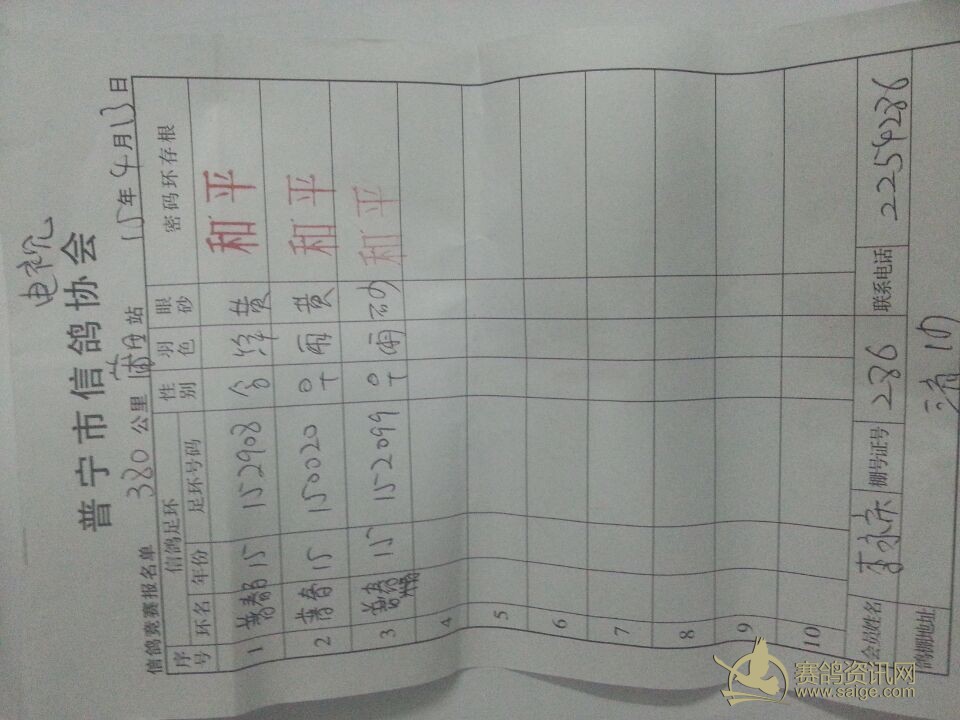 电视
普宁市信鸽协会
信鸽竞赛报名单 380 公里 站 15 年 4 月 13 日
序号 信鸽足环 性别 羽色 眼砂 密码环存根
环名 年份 足环号码
1 15 152908 合 绛 黄 和平
2 15 150020 ♀ 雨 黄 和平
3 15 152099 ♀ 雨 砂 和平
4
5
6
7
8
9
10
会员姓名 棚号证号 286 联系电话 2254286
鸽棚地址
赛鸽资讯网
www.saige.com